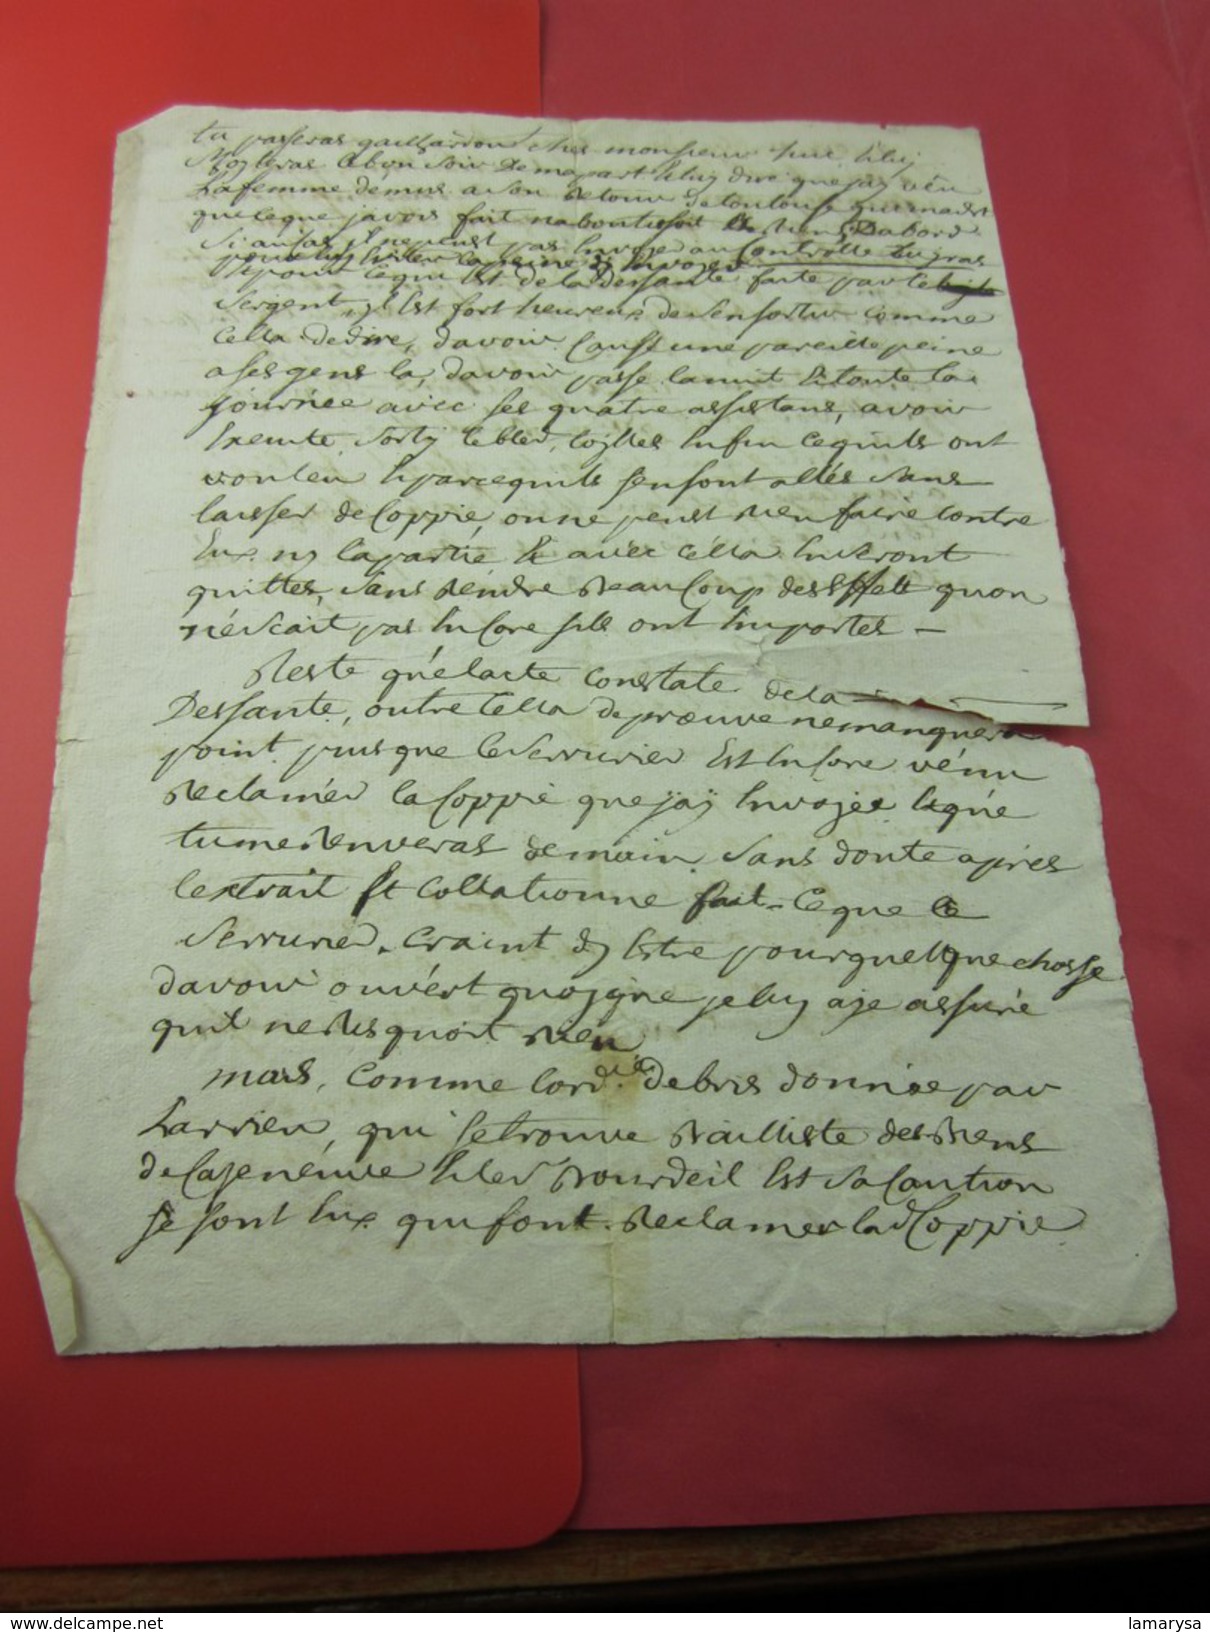 tu passeras gaillardou ches monsieur huc luy
le bon soir de ma part luy dire que jay veu
la femme demus a son retour de toulouse qui madit
que ceque javois fait naboutissoit a rien Dabord
si au cas il ne peust pas Invoyer au Controlle
pour luy la peine Invoyer
pour cequi Est de la dessante faite par le
sergent, il Est fort heureux de sen sortir comme
cella dedire, davoir Causé une pareille peine
a ses gens la, davoir passe la nuit Et toute la
journée avec ses quatre assistans, avoir
sorty lebled, Enfin cequils ont
vouleu Et parcequils senfont allés sans
laisser de Coppie, on ne peust rien faire contre
Eux ny la partie Et avec cella In seront
quittes, sans rendre beau Coup des Effets quon
né scait pas In Core sils ont Emportes —
Reste quélacte constate dela
Dessante, outre Cella la preuve ne manquera
point puisque le serrurier Est In Core vénu
reclamér la Coppie que jaÿ Invoyée Et que
tu me renveras demain sans doute apres
lextrait Et Collationne fait ce que le
serrurier craint dy Estre pour quelque chosse
davoir ouvért quoyque je luy aje assuré
quil ne risquoit rien
mais, comme lord.ce debris donnée par
Larrieu, qui se trouve Bailliste des Biens
de Caseneuve Et led Bourdeil Est sa Caution
se sont Eux qui font reclamer la d Coppie
lamarysa
delcampe.net